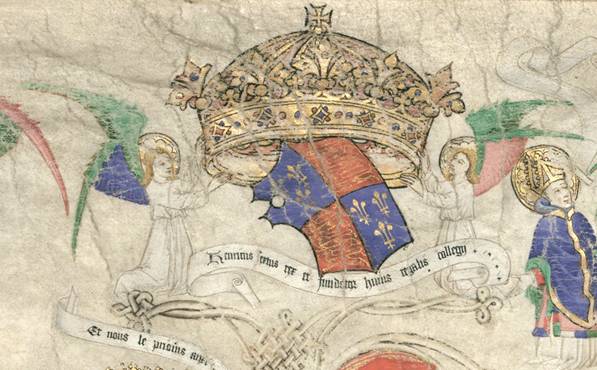 Henricus sextus rex et fundator huius regalis collegy
Et nous le prioins aux